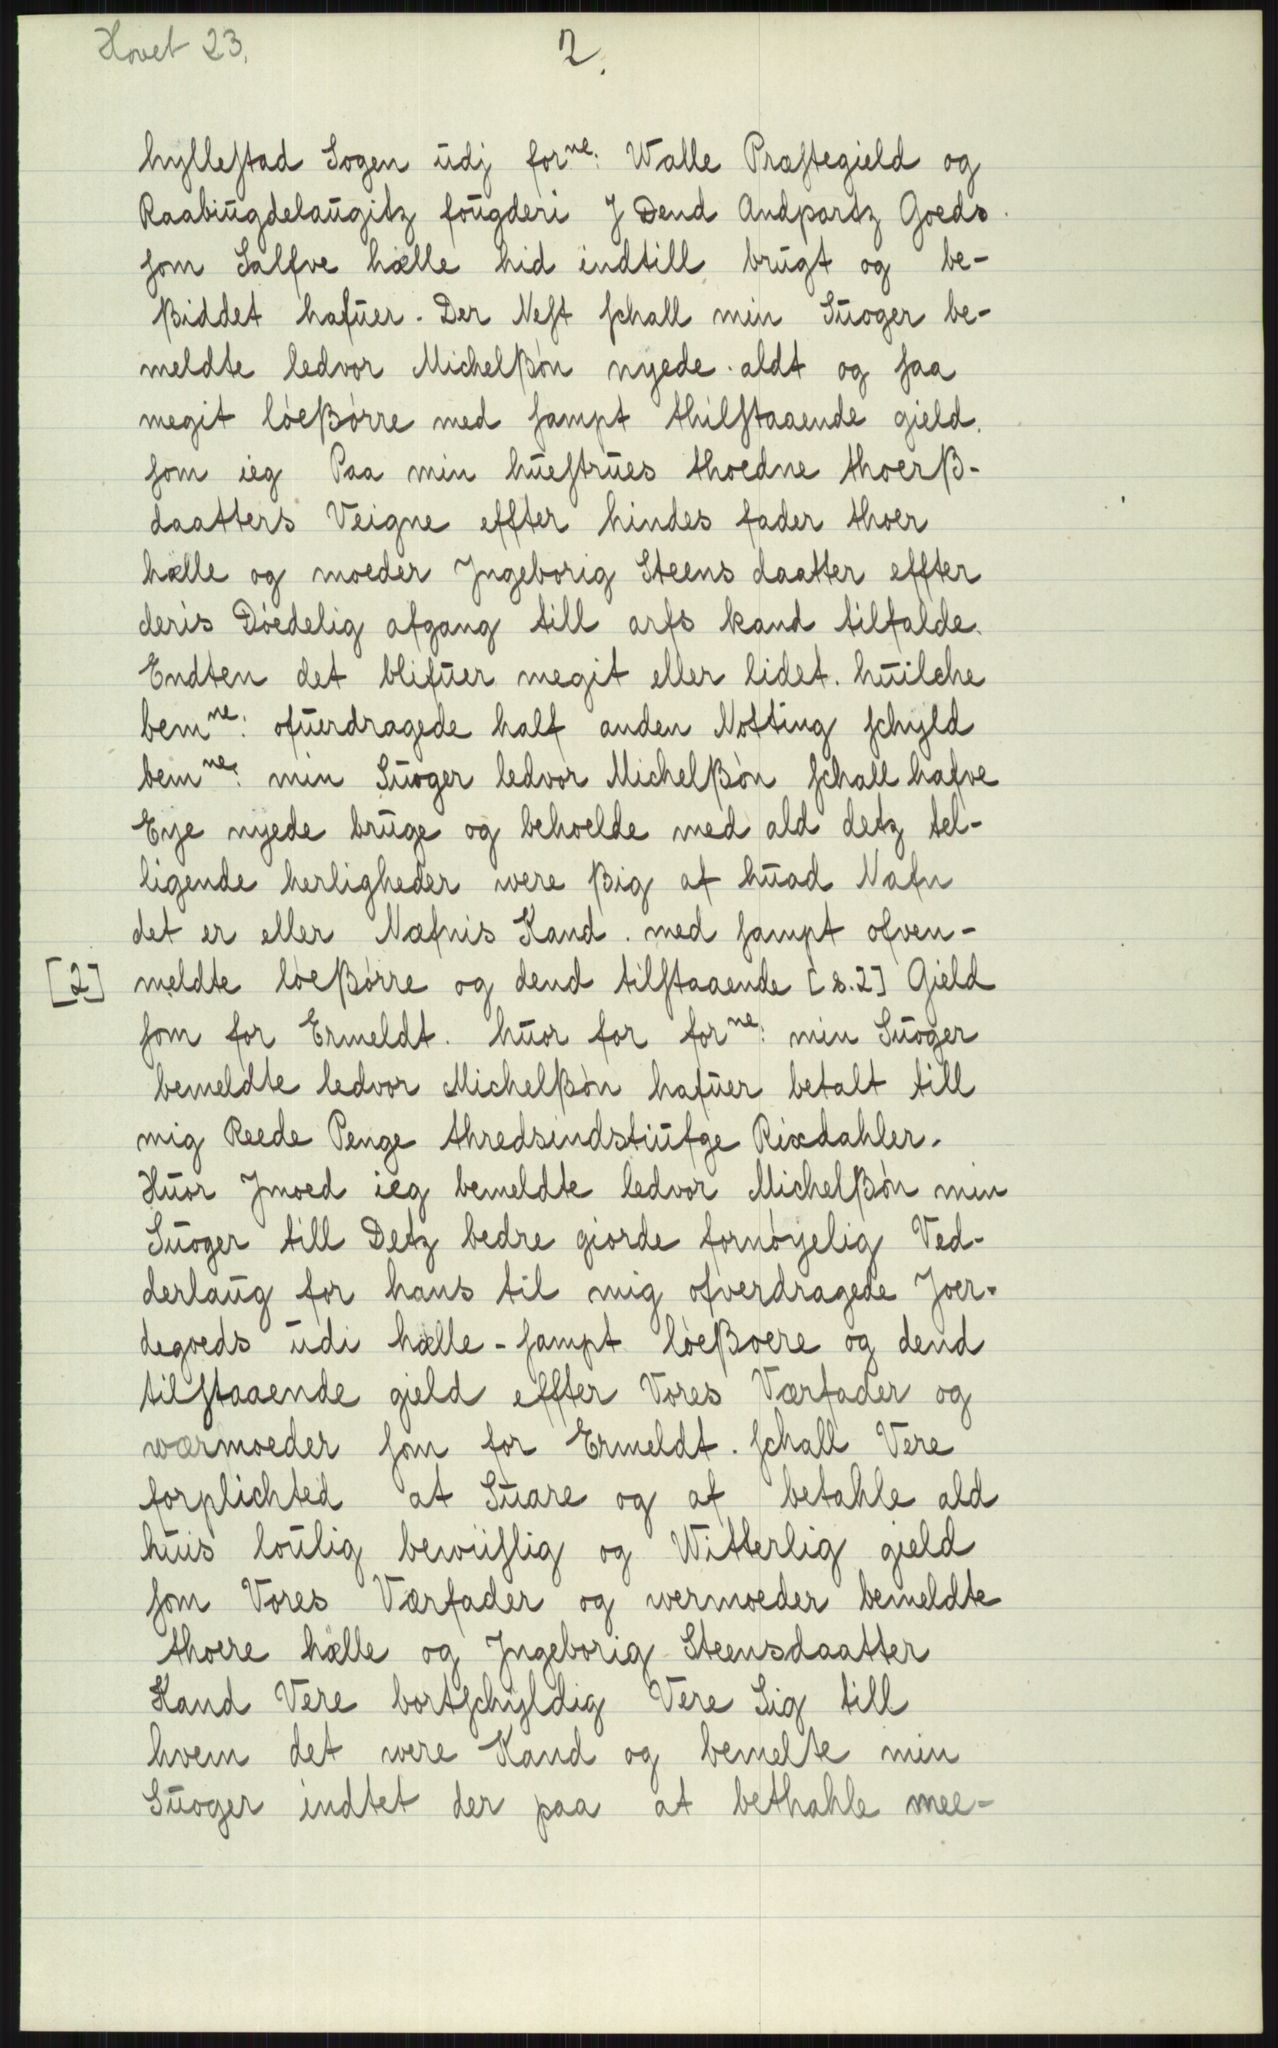 Hovet 23.
2.
hylleſtad Sogen udj forⁿᵉ: Walle Præſtegield og
Raabiugdelaugitz fougderi J Dend Andpartz Goeds
ſom Salfve hælle hid indtill brugt og be-
ßiddet hafuer. Der Neſt ſchall min Suoger be-
meldte ledvor Michelßøn nyede aldt og ſaa
megit løeßørre med ſampt thilſtaaende gield.
ſom ieg Paa min hueſtrues thoedne thoerß-
daatters Veigne effter hindes fader thoer
hælle og moeder Jngeborig Steens daatter effter
deris Døedelig afgang till arfs kand tilfalde.
Endten det blifuer megit eller lidet. huilche
bemⁿᵉ: ofuerdragede half anden Nøtting ſchyld
bemⁿᵉ: min Suoger ledvor Michelßøn ſchall hafve
Eye nyede bruge og behoelde med ald detz tel-
ligende herligheder were ßig af huad Nafn
det er eller Næfnis Kand. med ſampt ofven-
[2] meldte løeßørre og dend tilſtaaende [s.2] Gield
ſom for Ermeldt. huor for forⁿᵉ: min Suoger
bemeldte ledvor Michelßøn hafuer betalt till
mig Reede Penge thredsindstiufge Rixdahler.
Huor Jmoed ieg bemeldte ledvor Michelßøn min
Suoger till Detz bedre giorde fornøyelig Ved-
derlaug for hans til mig ofverdragede Joer-
degoeds udi hælle - ſampt løeßoere og dend
tilſtaaende gield effter Vores Værfader og
wærmoeder ſom for Ermeldt. ſchall Vere
forplichted at Suare og af betahle ald
huis loulig bewiiſlig og Witterlig gield
ſom Vores Værfader og wermoeder bemeldte
thoere hælle og Jngeborig Steensdaatter
Kand Vere bortſchyldig Vere Sig till
hvem det were Kand og bemelte min
Suoger indtet der paa at bethahle mee-